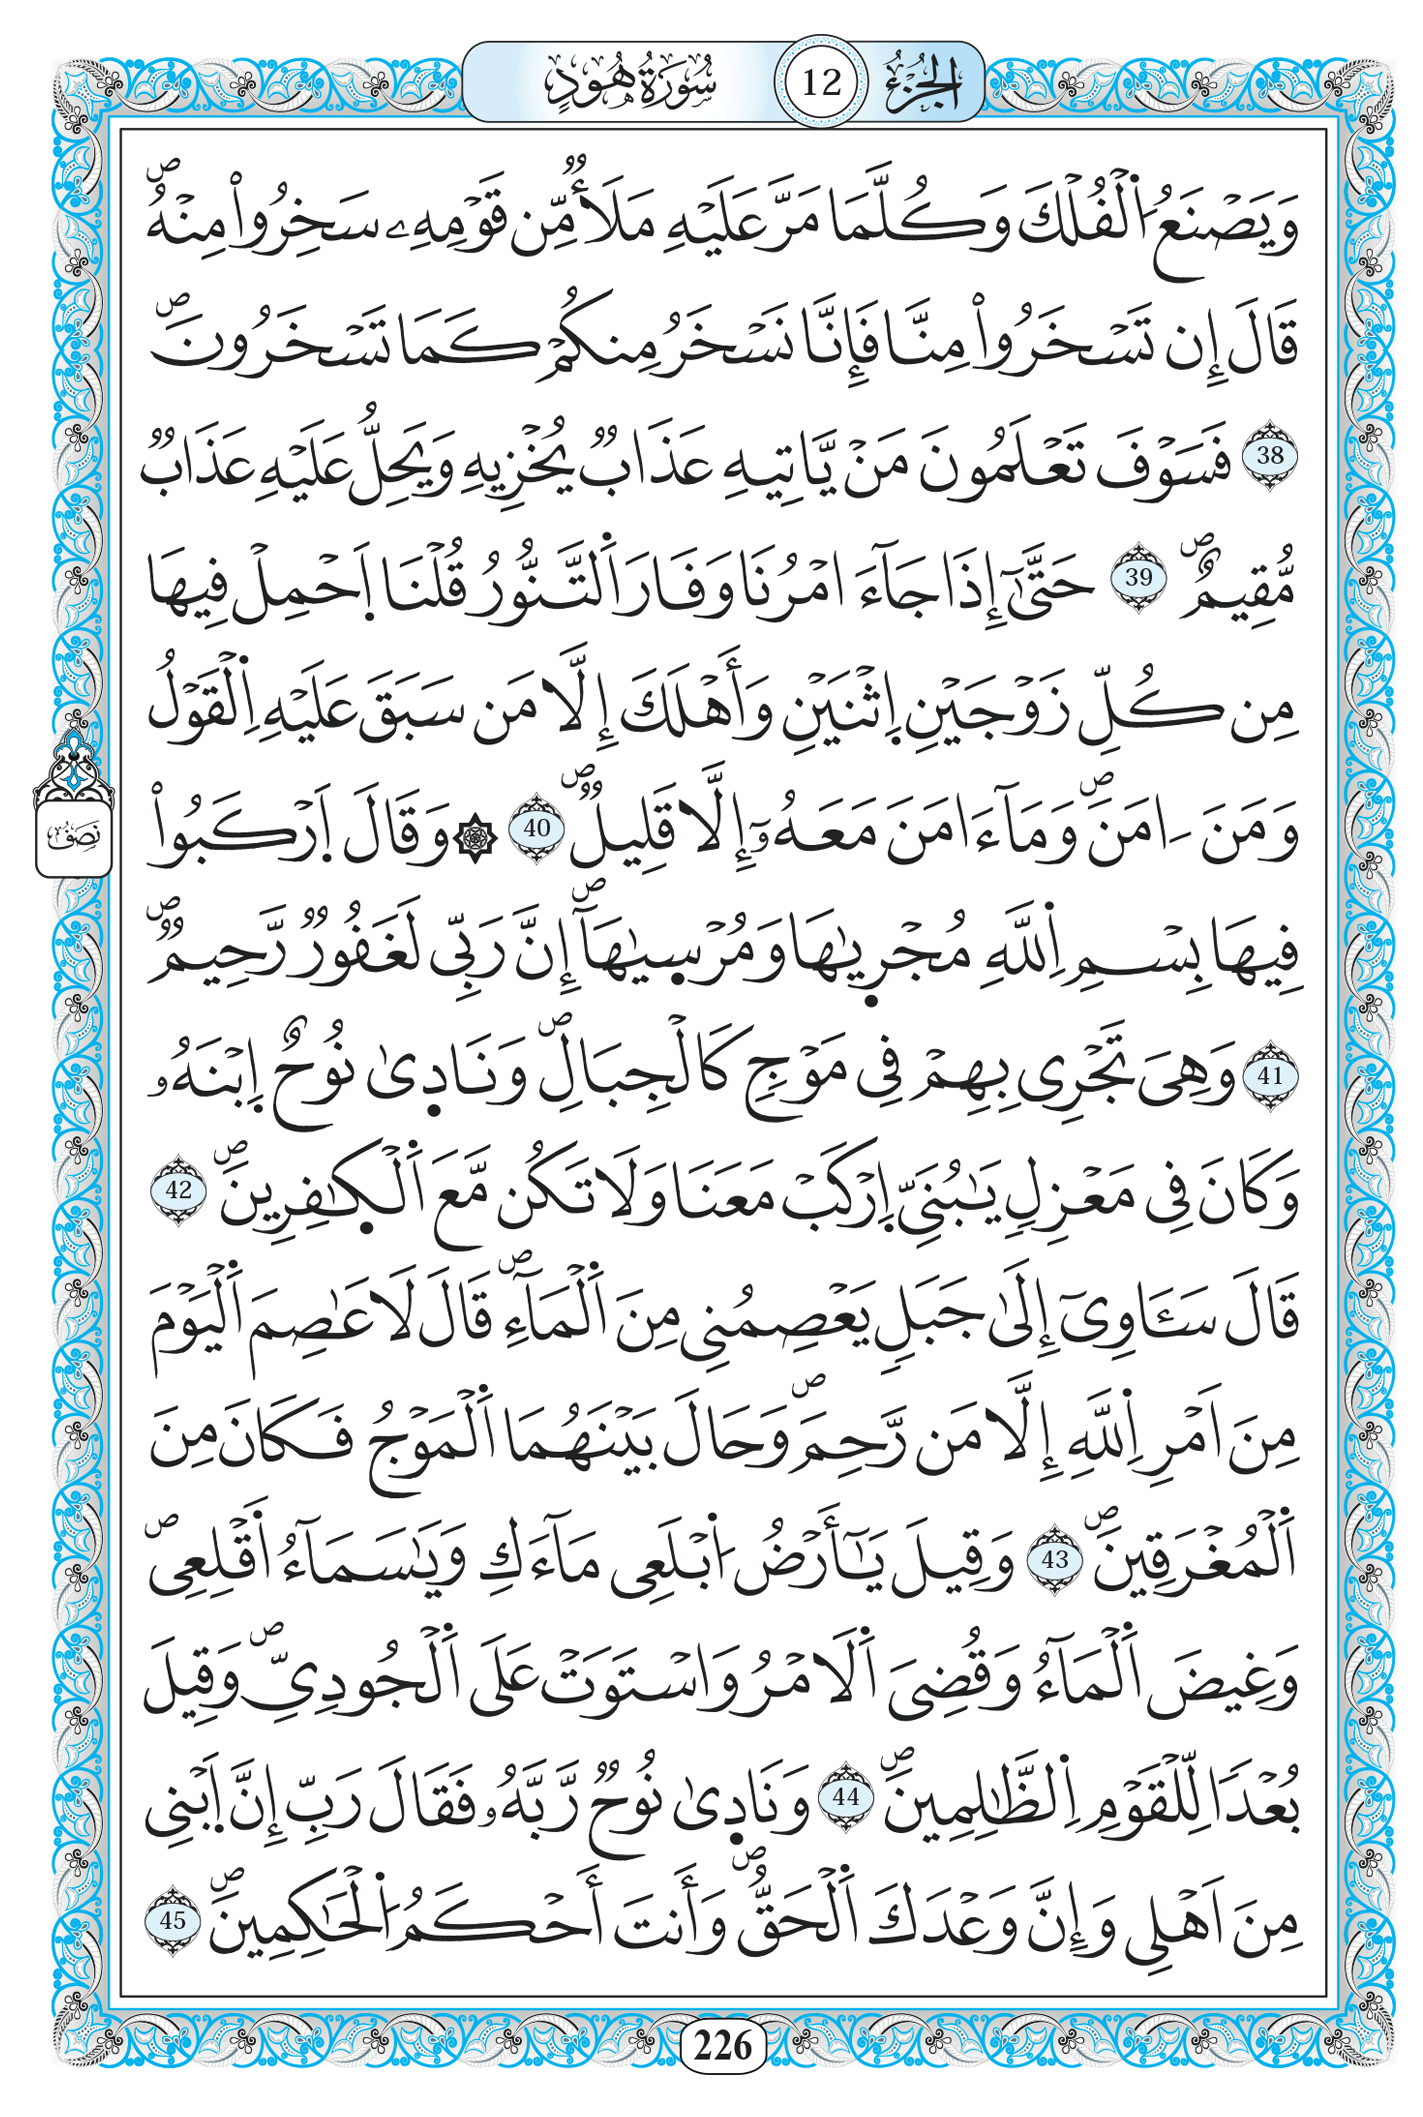 الجُزْءُ 12 سُورَةُ هُودٍ
وَيَصْنَعُ اُ۬لْفُلْكَ وَكُلَّمَا مَرَّ عَلَيْهِ مَلَأٞ مِّن قَوْمِهِۦ سَخِرُواْ مِنْهُۖ
قَالَ إِن تَسْخَرُواْ مِنَّا فَإِنَّا نَسْخَرُ مِنكُمْ كَمَا تَسْخَرُونَۖ
38 فَسَوْفَ تَعْلَمُونَ مَنْ يَّاتِيهِ عَذَابٞ يُخْزِيهِ وَيَحِلُّ عَلَيْهِ عَذَابٞ
مُّقِيمٌۖ 39 حَتَّىٰٓ إِذَا جَآءَ امْرُنَا وَفَارَ اَ۬لتَّنُّورُ قُلْنَا اَ۪حْمِلْ فِيهَا
مِن كُلِّ زَوْجَيْنِ اِ۪ثْنَيْنِ وَأَهْلَكَ إِلَّا مَن سَبَقَ عَلَيْهِ اِ۬لْقَوْلُ
وَمَنَ اٰمَنَۖ وَمَآ ءَامَنَ مَعَهُۥٓ إِلَّا قَلِيلٞۖ 40 ۞ وَقَالَ اَ۪رْكَبُواْ
فِيهَا بِسْمِ اِ۬للَّهِ مُجْر۪ىٰهَا وَمُرْس۪ىٰهَآۖ إِنَّ رَبِّى لَغَفُورٞ رَّحِيمٞۖ
41 وَهِىَ تَجْرِى بِهِمْ فِى مَوْجٖ كَالْجِبَالِۖ وَنَاد۪ىٰ نُوحٌ اِ۪بْنَهُۥ
وَكَانَ فِى مَعْزِلٖ يَٰبُنَىِّ اِ۪رْكَبْ مَعَنَا وَلَا تَكُن مَّعَ اَ۬لْكٰ۪فِرِينَۖ 42
قَالَ سَـَٔاوِىٓ إِلَىٰ جَبَلٖ يَعْصِمُنِى مِنَ اَ۬لْمَآءِۖ قَالَ لَا عَٰصِمَ اَ۬لْيَوْمَ
مِنَ اَمْرِ اِ۬للَّهِ إِلَّا مَن رَّحِمَۖ وَحَالَ بَيْنَهُمَا اَ۬لْمَوْجُ فَكَانَ مِنَ
اَ۬لْمُغْرَقِينَۖ 43 وَقِيلَ يَٰٓأَرْضُ اُ۪بْلَعِى مَآءَكِ وَيَٰسَمَآءُ اَقْلِعِىۖ
وَغِيضَ اَ۬لْمَآءُ وَقُضِىَ اَ۬لَامْرُ وَاسْتَوَتْ عَلَى اَ۬لْجُودِىِّۖ وَقِيلَ
بُعْداٗ لِّلْقَوْمِ اِ۬لظَّٰلِمِينَۖ 44 وَنَاد۪ىٰ نُوحٞ رَّبَّهُۥ فَقَالَ رَبِّ إِنَّ اَ۪بْنِى
مِنَ اَهْلِى وَإِنَّ وَعْدَكَ اَ۬لْحَقُّۖ وَأَنتَ أَحْكَمُ اُ۬لْحَٰكِمِينَۖ 45
نِصْفُ
226